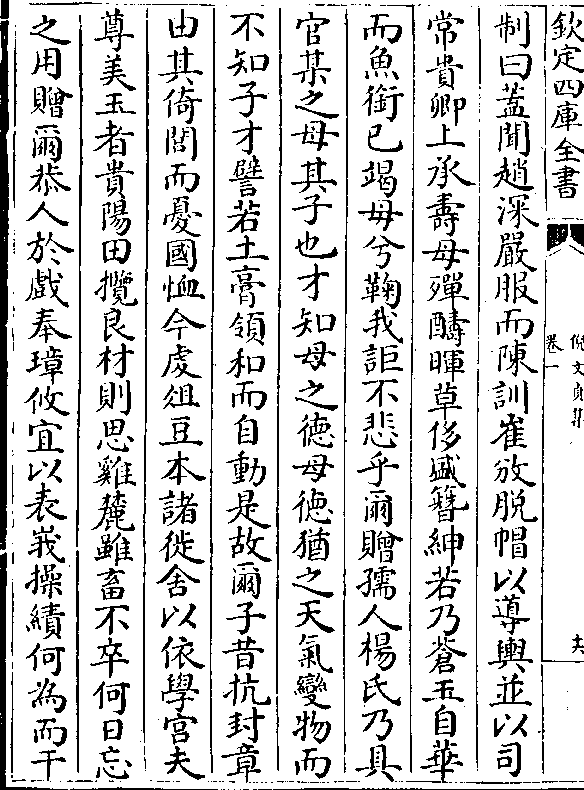 欽定四庫全書
倪文貞集
卷一
制曰蓋聞趙深嚴服而陳訓崔攽脱帽以導輿並以司
常貴卿上承壽母殫疇暉草侈盛簪紳若乃蒼玉自華
而魚銜已竭母兮鞠我詎不悲乎爾贈孺人楊氏乃具
官某之母其子也才知母之德母德猶之天氣變物而
不知子才譬若土膏領和而自動是故爾子昔抗封章
由其倚閭而憂國恤今䖏俎豆本諸徙舍以依學宫夫
尊美玉者貴陽田攬良材則思雞麓雖畜不卒何日忘
之用贈爾恭人於戲奉璋攸宜以表峩操績何為而干